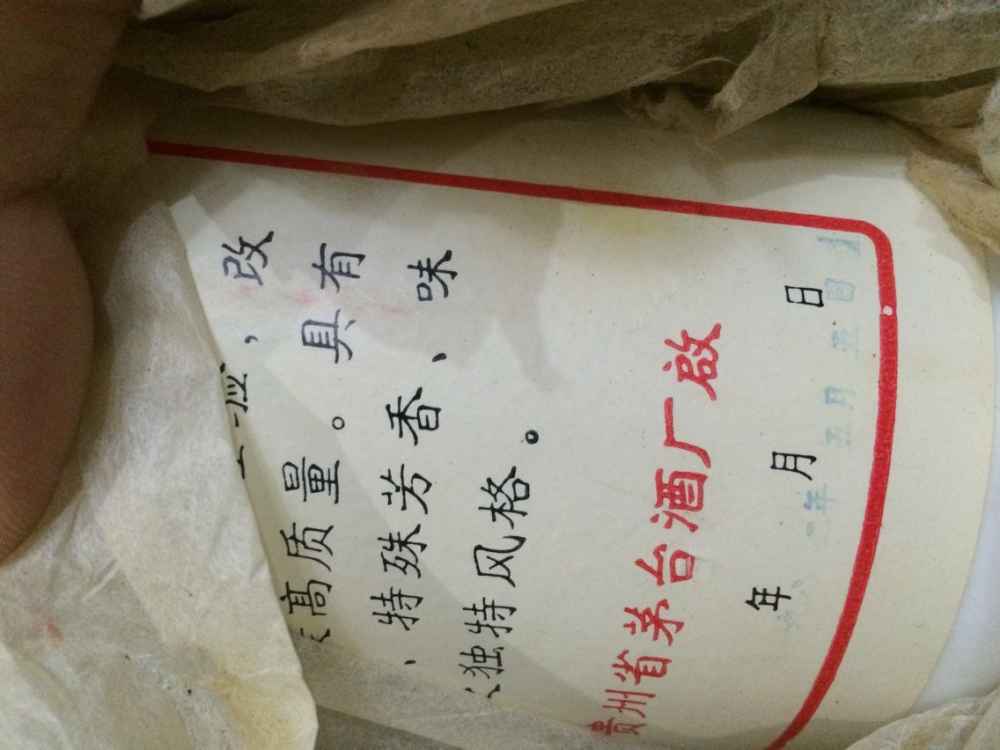 验，改
高质量。具有
、特殊芳香、味
独特风格。
贵州省茅台酒厂啟
年 月 日
年 五月